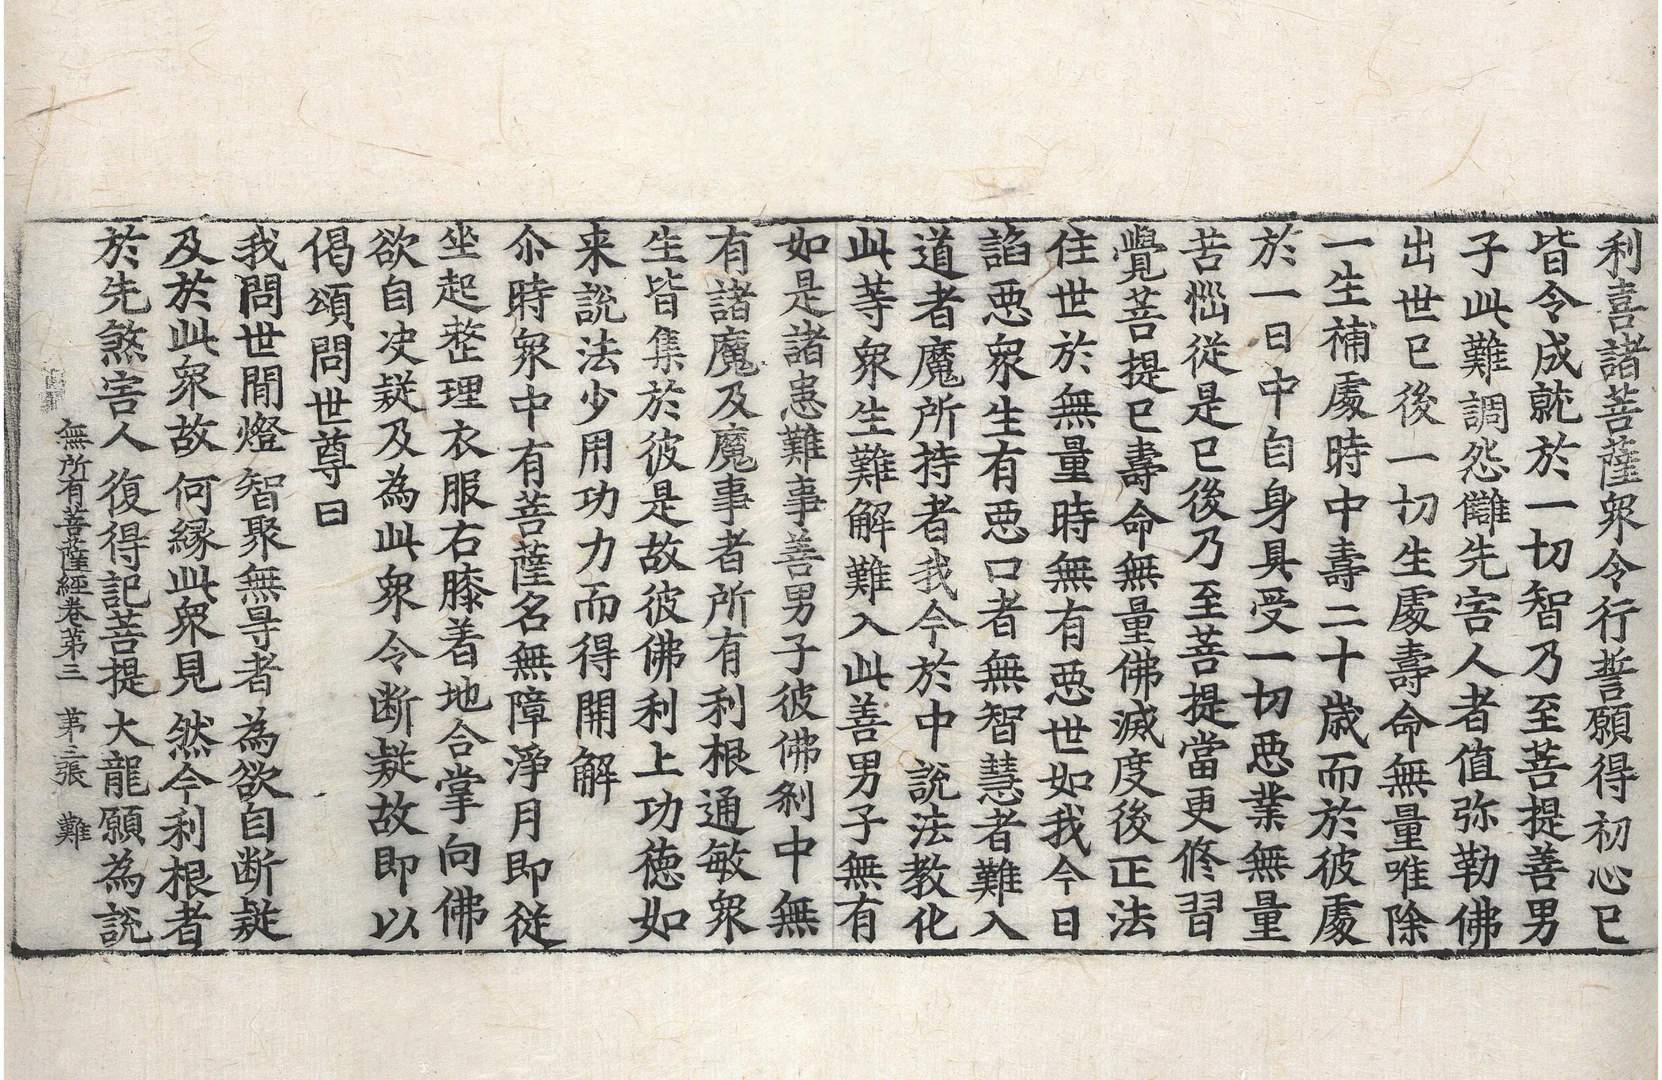 利喜諸菩薩衆令行誓願得初心已
皆令成就於一切智乃至菩提善男
子此難調怨讎先害人者值弥勒佛
出世已後一切生處壽命無量唯除
一生補處時中壽二十歲而於彼處
於一日中自身具受一切惡業無量
苦惱從是已後乃至菩提當更修習
覺菩提已壽命無量佛滅度後正法
住世於無量時無有惡世如我今日
諂惡衆生有惡口者無智慧者難入
道者魔所持者我今於中說法教化
此等衆生難解難入此善男子無有
如是諸患難事善男子彼佛刹中無
有諸魔及魔事者所有利根通敏衆
生皆集於彼是故彼佛利上功德如
来說法少用功力而得開解
尒時衆中有菩薩名無障淨月即從
坐起整理衣服右膝着地合掌向佛
欲自决疑及為此衆令断疑故即以
偈頌問世尊曰
我問世間燈 智聚無㝵者 為欲自断疑
及於此衆故 何縁此衆見 然今利根者
於先煞害人 復得記菩提 大龍願為說
無所有菩薩經卷第三 第三張 難